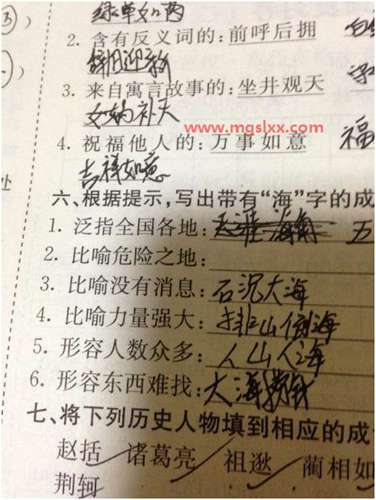 绿草如茵
2. 含有反义词的：前呼后拥
辞旧迎新
3. 来自寓言故事的：坐井观天
女娲补天
www.mgslxx.com
4. 祝福他人的：万事如意 福
吉祥如意
处
六、根据提示，写出带有“海”字的成
1. 泛指全国各地： 五
2. 比喻危险之地：
3. 比喻没有消息：石沉大海
4. 比喻力量强大：排山倒海
5. 形容人数众多：人山人海
6. 形容东西难找：大海捞针
七、将下列历史人物填到相应的成
赵括 诸葛亮 祖逖 蔺相如
荆轲